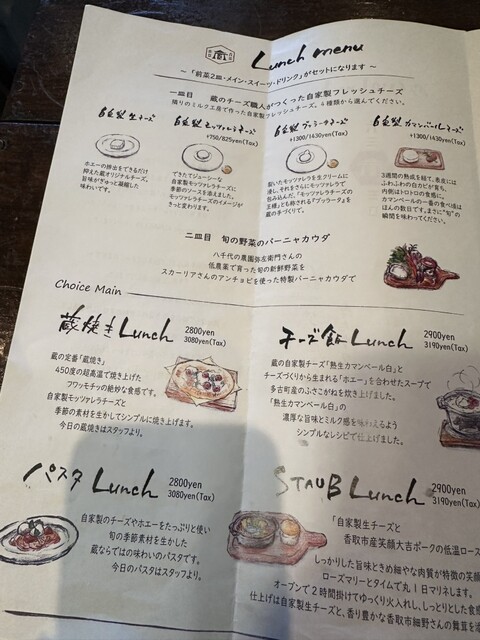 蔵
Lunch menu
～「前菜2皿・メイン・スイーツ・ドリンク」がセットになります～
一皿目 蔵のチーズ職人がつくった自家製フレッシュチーズ
隣りのミルク工房で作った自家製フレッシュチーズ。4種類から選んでください。
自家製 生チーズ
ホエーの排出をできるだけ
抑えた蔵オリジナルチーズ。
旨味がぎゅっと凝縮した
味わいです。
自家製 モッツァレラチーズ
+750/825yen(Tax)
できたてジューシーな
自家製モッツァレラチーズに
季節のソースを添えました。
モッツァレラチーズのイメージが
きっと変わります。
自家製 ブッラータチーズ
+1300/1430yen(Tax)
製いたモッツァレラを生クリームに
浸し、それをさらにモッツァレラで
包み込んだ、「モッツァレラチーズの
王様」とも称される「ブッラータ」を
蔵の手づくりで。
自家製 カマンベールチーズ
+1300/1430yen(Tax)
3週間の熟成を経て、表皮には
ふわふわの白カビが育ち、
内側はトロトロの食感に。
カマンベールの一番の食べ頃は
ほんの数日です。まさに"旬"の
瞬間を味わってください。
二皿目 旬の野菜のバーニャカウダ
八千代の農園弥左衛門さんの
低農薬で育った旬の新鮮野菜を
スカーリアさんのアンチョビを使った特製バーニャカウダで
Choice Main
蔵焼きLunch
2800yen
3080yen(Tax)
蔵の定番「蔵焼き」
450度の超高温で焼き上げた
フワッモチッの絶妙な食感です。
自家製モッツァレラチーズと
季節の素材を生かしてシンプルに焼き上げます。
今日の蔵焼きはスタッフより。
チーズ飯Lunch
2900yen
3190yen(Tax)
蔵の自家製チーズ「熟生カマンベール白」と
チーズづくりから生まれる「ホエー」を合わせたスープで
多古町産のふさこがねを炊き上げました。
「熟生カマンベール白」の
濃厚な旨味とミルク感を味わえるよう
シンプルなレシピで仕上げました。
パスタ Lunch
2800yen
3080yen(Tax)
自家製のチーズやホエーをたっぷりと使い
旬の季節素材を生かした
蔵ならではの味わいのパスタです。
今日のパスタはスタッフより。
STAUB Lunch
2900yen
3190yen(Tax)
「自家製生チーズと
香取市産笑顔大吉ポークの低温ロース
しっかりした旨味ときめ細やかな肉質が特徴の笑顔
ローズマリーとタイムで丸1日マリネします。
オーブンで2時間掛けてゆっくり火入れし、しっとりとした食感
仕上げは自家製生チーズと、香り豊かな香取市細野さんの舞茸を